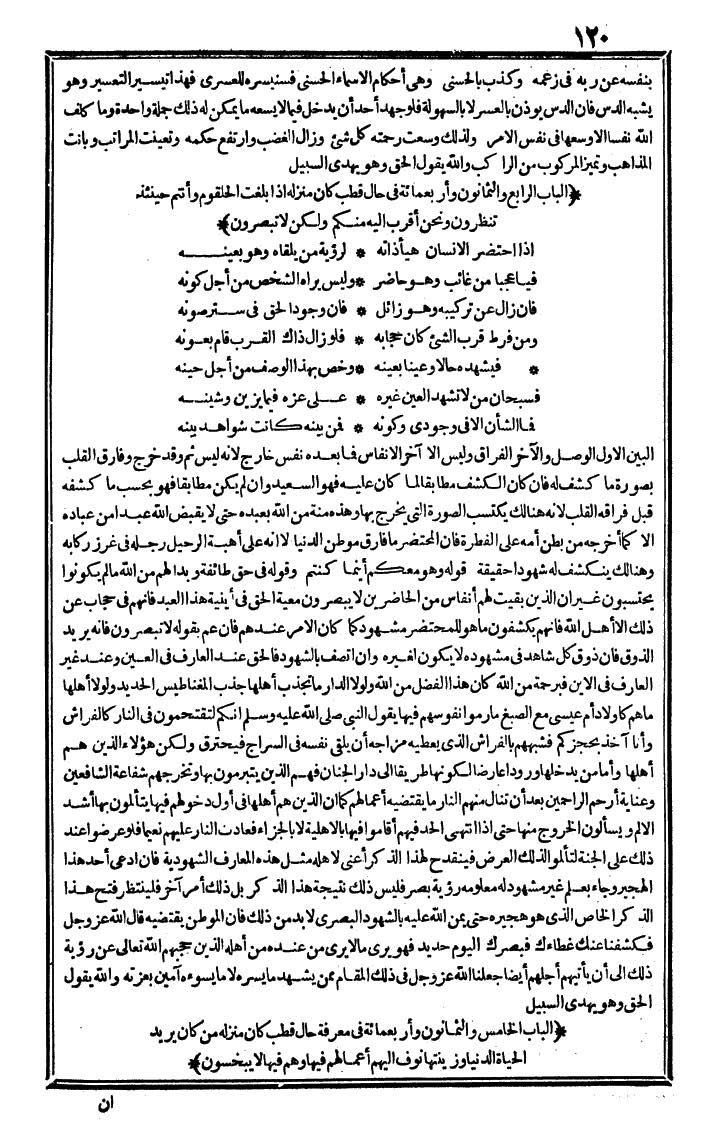 ١٢٠
بنفسه عن ربه فى زعمه وكذب بالحسنى وهى أحكام الاسماء الحسنى فسنيسره للعسرى فهذا تيسير التعسير وهو
يشبه الدس فان الدس يوذن بالعسر لا بالسهولة فلو جهد أحد أن يدخل فيما لا يسعه ما يمكن له ذلك جملة واحدة وما كلف
الله نفسا الا وسعها فى نفس الامر ولذلك وسعت رحمته كل شئ وزال الغضب وارتفع حكمه وتعينت المراتب وبانت
المذاهب وتميز المركوب من الراكب والله يقول الحق وهو يهدى السبيل
﴿الباب الرابع والثمانون وأربعمائة فى حال قطب كان منزله اذا بلغت الحلقوم وأنتم حينئذ
تنظرون ونحن أقرب اليه منكم ولكن لا تبصرون﴾
اذا احتضر الانسان هيأ ذاته * لرؤية من يلقاه وهو بعينه
فيا عجبا من غائب وهو حاضر * وليس يراه الشخص من أجل كونه
فان زال عن تركيبه وهو زائل * فان وجود الحق فى ستر صونه
ومن فرط قرب الشئ كان حجابه * فلو زال ذاك القرب قام بعونه
* فيشهده حالا وعينا بعينه * وخص بهذا الوصف من أجل حينه
فسبحان من لا تشهد العين غيره * على عزه فيما يزين وشينه
فما الشأن الا فى وجودى وكونه * فمن بينه كانت شواهد بينه
البين الاول الوصل والآخر الفراق وليس الا آخر الانفاس فما بعده نفس خارج لانه ليس ثم وقد خرج وفارق القلب
بصورة ما كشف له فان كان الكشف مطابقا لما كان عليه فهو السعيد وان لم يكن مطابقا فهو بحسب ما كشفه
قبل فراقه القلب لانه هنالك يكتسب الصورة التى يخرج بها وهذه منة من الله بعبده حتى لا يقبض الله عبدا من عباده
الا كما أخرجه من بطن أمه على الفطرة فان المحتضر ما فارق موطن الدنيا لا انه على أهبة الرحيل رجله فى غرز ركابه
وهنالك ينكشف له شهودا حقيقة قوله وهو معكم أينما كنتم وقوله فى حق طائفة وبدا لهم من الله ما لم يكونوا
يحتسبون غير ان الذين بقيت لهم أنفاس من الحاضرين لا يبصرون معية الحق فى أينية هذا العبد فانهم فى حجاب عن
ذلك الا أهل الله فانهم يكشفون ما هو للمحتضر مشهود كما كان الامر عندهم فان عم بقوله لا تبصرون فانه يريد
الذوق فان ذوق كل شاهد فى مشهوده لا يكون لغيره وان اتصف بالشهود فالحق عند العارف فى العين وعند غير
العارف فى الاين فبرحمة من الله كان هذا الفضل من الله ولولا الدار ما تجذب أهلها جذب المغناطيس الحديد ولولا أهلها
ما هم كاولاد أم عيسى مع الصبغ ما رموا نفوسهم فيها يقول النبى صلى الله عليه وسلم انكم لتقتحمون فى النار كالفراش
وأنا آخذ بحجزكم فشبههم بالفراش الذى يعطيه مزاجه أن يلقى نفسه فى السراج فيحترق ولكن هؤلاء الذين هم
أهلها وأما من يدخلها ورودا عارضا لكونها طريقا الى دار الجنان فهم الذين يتبرمون بها وتخرجهم شفاعة الشافعين
وعناية أرحم الراحمين بعد أن تنال منهم النار ما يقتضيه أعمالهم كما ان الذين هم أهلها فى أول دخولهم فيها يتألمون بها أشد
الالم ويسألون الخروج منها حتى اذا انتهى الحد فيهم أقاموا فيها بالاهلية لا بالجزاء فعادت النار عليهم نعيما فلو عرضوا عند
ذلك على الجنة لتألموا لذلك العرض فينقدح لهذا الذكر أعنى لاهله مثل هذه المعارف الشهودية فان ادعى أحد هذا
الهجير وجاء بعلم غير مشهود له معلومه رؤية بصر فليس ذلك نتيجة هذا الذكر بل ذلك أمر آخر فلينتظر فتح هذا
الذكر الخاص الذى هو هجيره حتى يمن الله عليه بالشهود البصرى لا بد من ذلك فان الموطن يقتضيه قال الله عز وجل
فكشفنا عنك غطاءك فبصرك اليوم حديد فهو يرى ما لا يرى من عنده من أهله الذين حجبهم الله تعالى عن رؤية
ذلك الى أن يأتيهم أجلهم أيضا جعلنا الله عز وجل فى ذلك المقام ممن يشهد ما يسره لا ما يسوءه آمين بعزته والله يقول
الحق وهو يهدى السبيل
﴿الباب الخامس والثمانون وأربعمائة فى معرفة حال قطب كان منزله من كان يريد
الحياة الدنيا وزينتها نوف اليهم أعمالهم فيها وهم فيها لا يبخسون﴾
ان